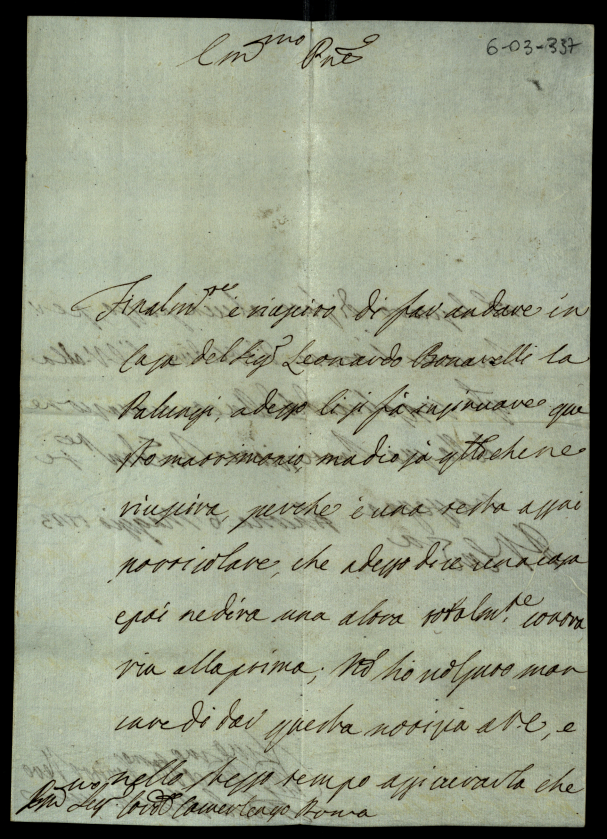 6-03-337
Em.mo Pne
Finalm.te è riuscito di far andare in
casa del Sig.r Leonardo Bonarelli la
Palunci, adesso li si fà insinuare que
sto matrimonio, ma dio sà q.llo che ne
riuscirà, perche è una testa assai
particolare, che adesso dice una cosa
e poi ne dirà una altra totalm.te contra
ria alla prima; Nò hò volsuto man
care di dar questa notizia a V.E., e
nello stesso tempo assicurarla che
Em.mo Sig.r Card. Camerlengo Roma